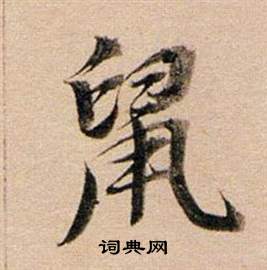 鼠
词典网